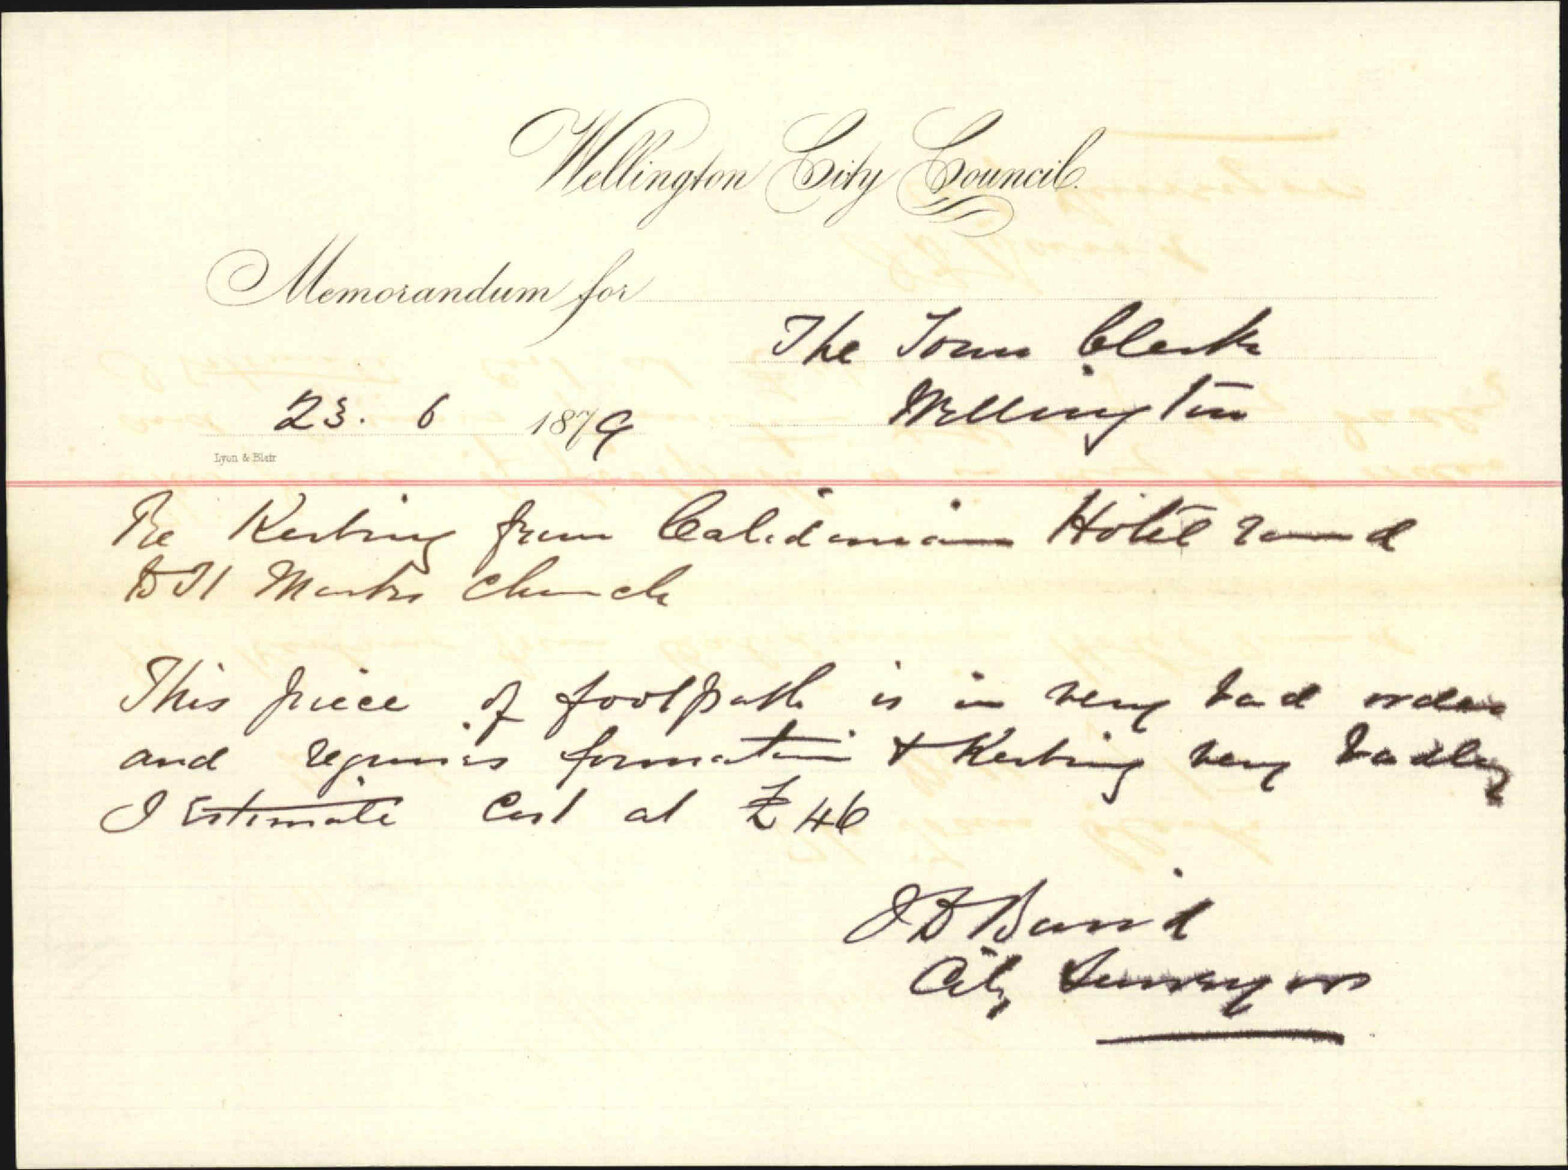 Wellington City Council.
Memorandum for
The Town Clerk
Wellington
23. 6 1879
Lyon & Blair
Re Kerbing from Caledonian Hotel round
to St Marks Church
This piece of footpath is in very bad order
and requires formation & Kerbing very badly
I Estimate Cost at £46
J D Baird
City Surveyor